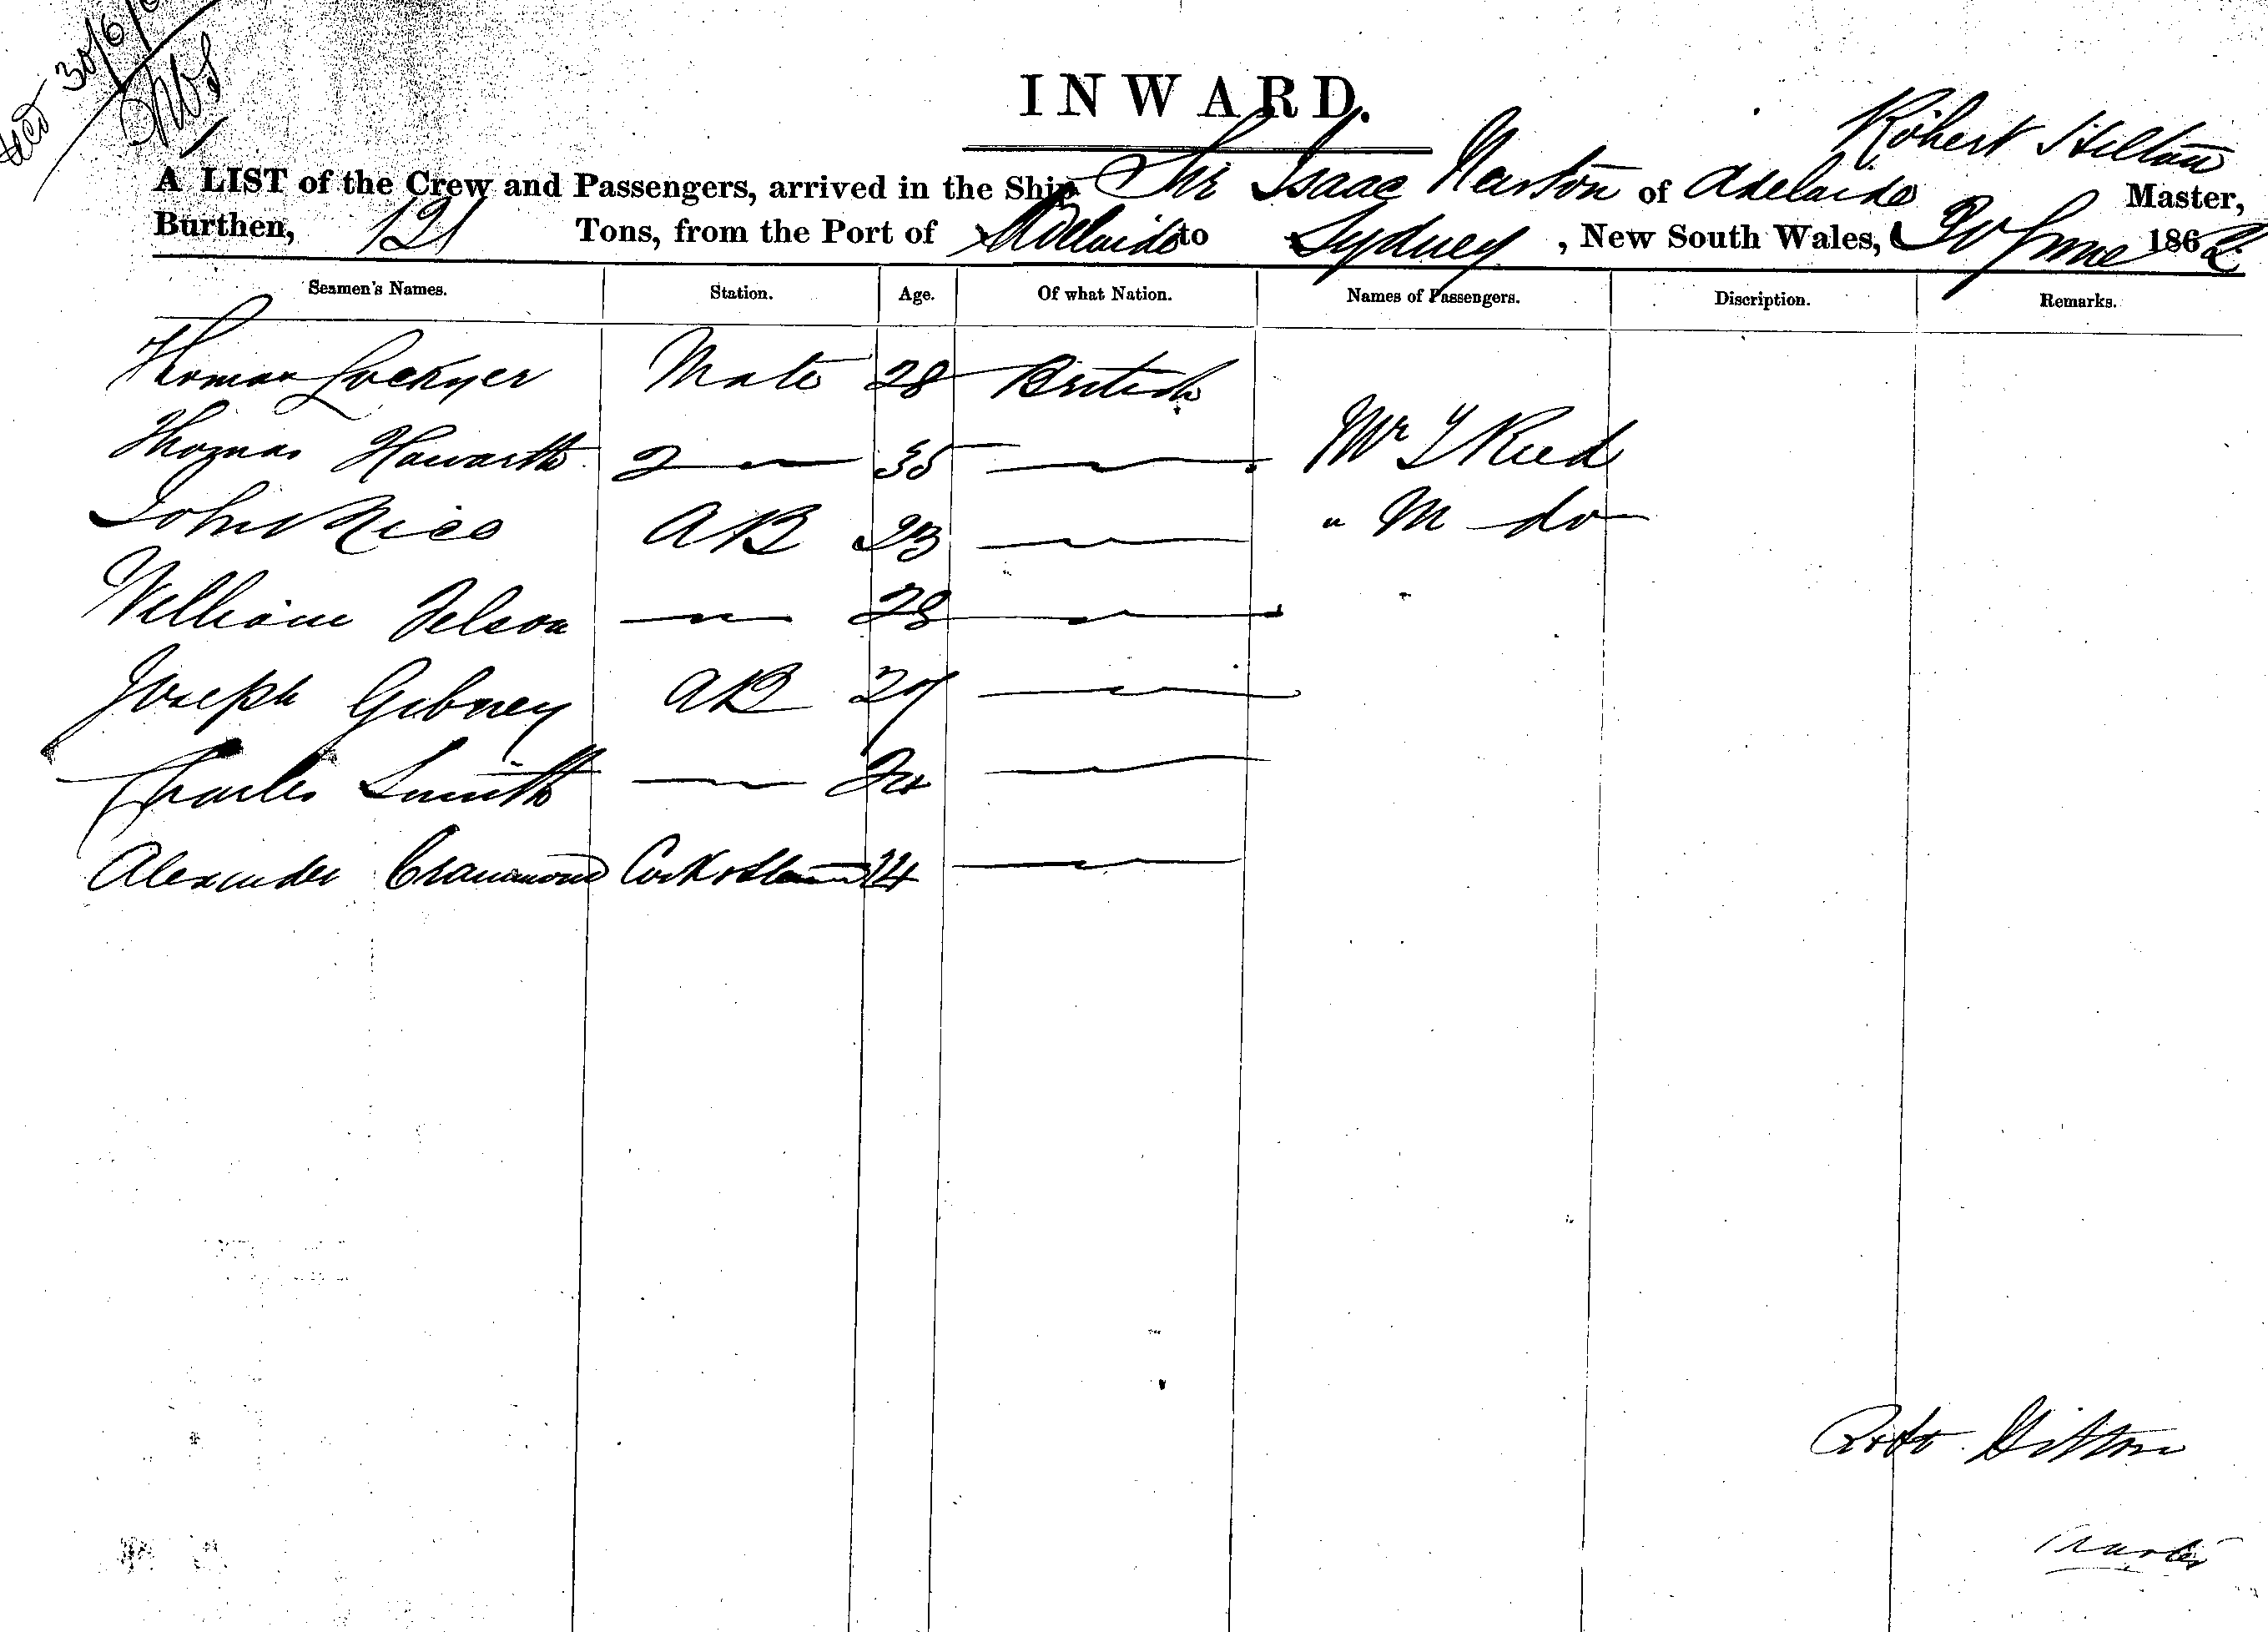 30/6/6
INWARD.
Robert Hilton
A LIST of the Crew and Passengers, arrived in the Ship Sir Isaac Newton of Adelaide Master,
Burthen, 121 Tons, from the Port of Adelaide to Sydney, New South Wales, 30 June 1862
Seamen's Names. Station. Age. Of what Nation. Names of Passengers. Discription. Remarks.
Thomas Lockyer Mate 28 British
Thomas Howarth 2 — 35 — Mr Reed
John Rice AB 23 — " M do
William — 28 —
Joseph Gibney AB 27 —
Charles Smith — 24 —
Alexander Crammond 24 —
Robt Hilton
Master